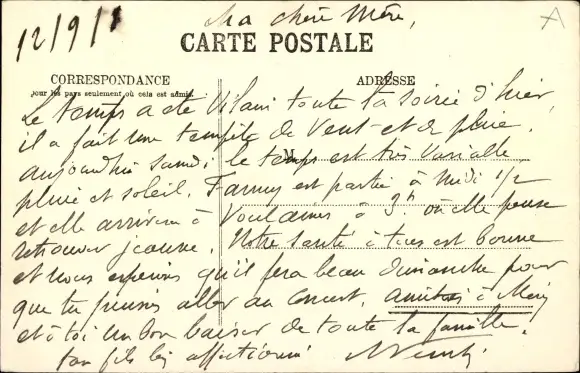 12/9/1
Ma chère Mère,
A
CARTE POSTALE
CORRESPONDANCE
ADRESSE
pour les pays seulement où cela est admis.
M
Le temps a été vilain toute la soirée d'hier,
il a fait une tempête de vent et de pluie.
aujourdhui samdi le temps est très variable
pluie et soleil. Fanny est partie à midi 1/2
et elle arrivera à Voulaines à 3h où elle pense
retrouver Jeanne. Notre santé à tous est bonne
et nous espérons qu'il fera beau dimanche pour
que tu puisses aller au concert. à
et à toi un bon baiser de toute la famille.
ton fils bien affectionné